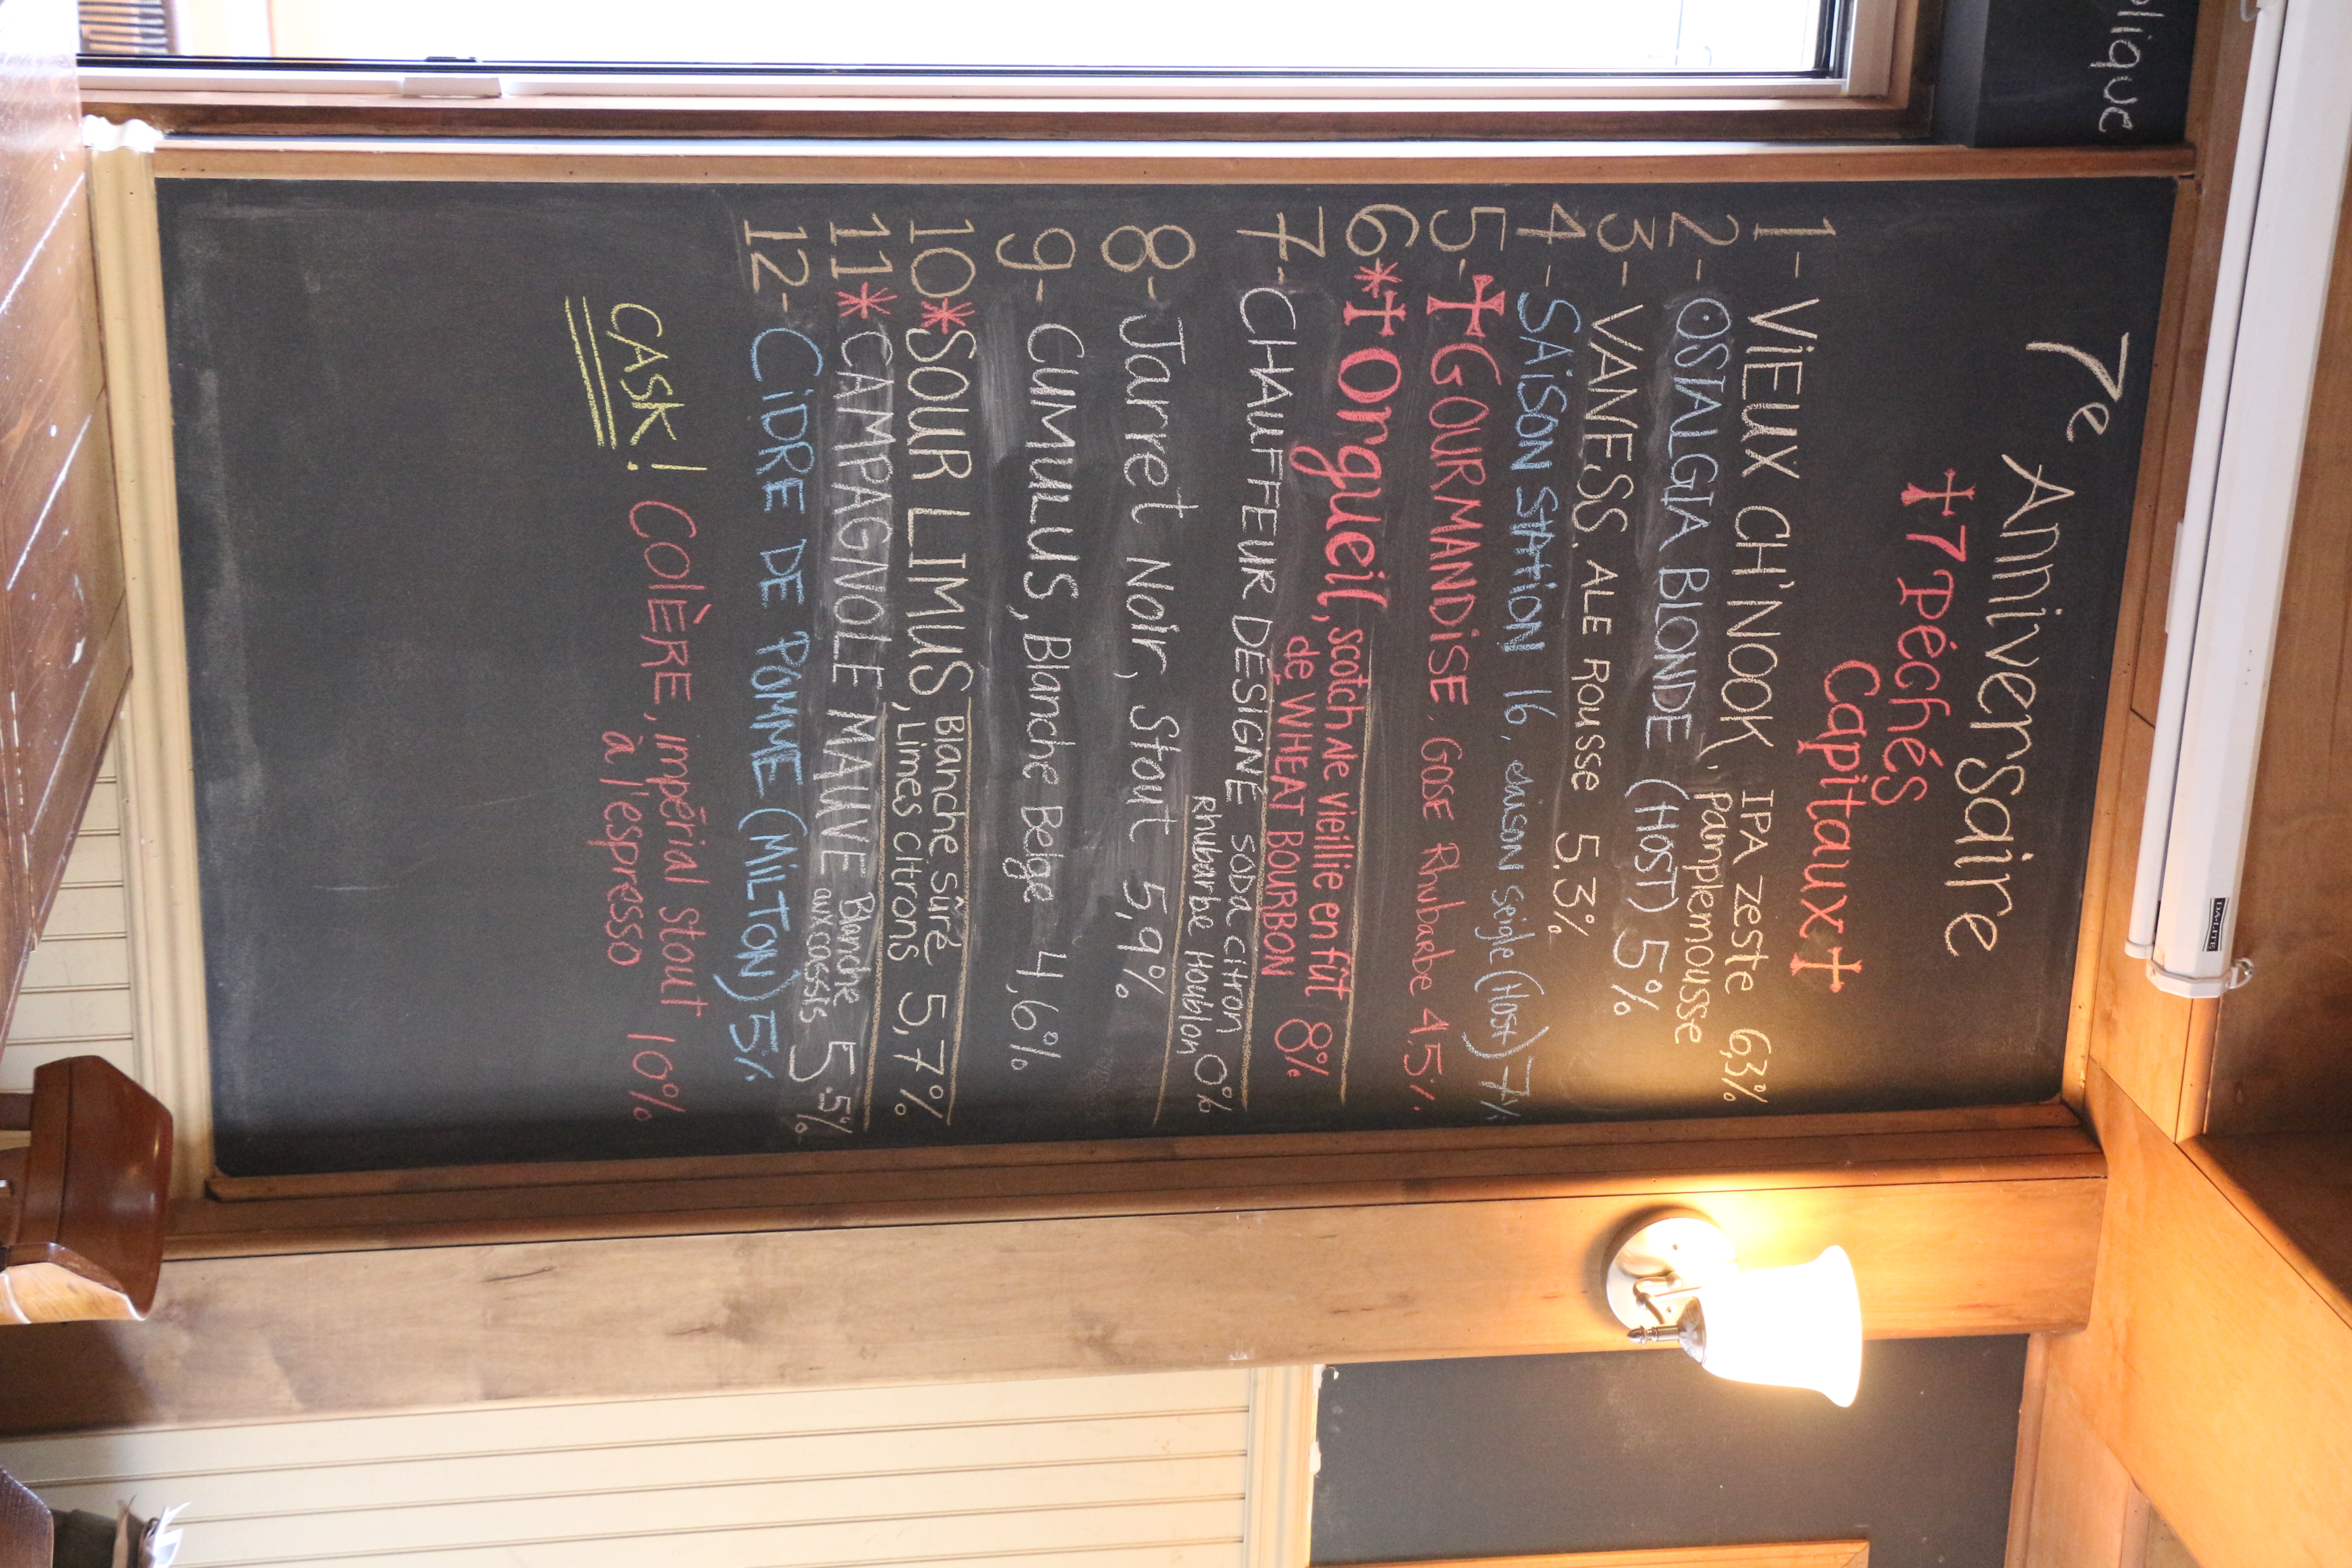 7e Anniversaire
†7 Péchés
Capitaux†
1- VIEUX CH'NOOK, IPA ZESTE 6,3%
Pamplemousse
2- OSTALGIA BLONDE (HOST) 5%
3- VANESS, ALE ROUSSE 5.3%
4- SAISON STATION 16, saison seigle (Host) 7%
5-†GOURMANDISE, GOSE Rhubarbe 4,5%
6*† Orgueil, scotch Ale vieillie en fût
de WHEAT BOURBON 8%
7- CHAUFFEUR DÉSIGNÉ soda citron
Rhubarbe Houblon 0%
8- Jarret Noir, Stout 5,9%
9- CUMULUS, Blanche Belge 4,6%
10*SOUR LIMUS, Blanche sûre 5,7%
Limes citrons
11*CAMPAGNOLE MAUVE Blanche 5.5%
aux cassis
12- CIDRE DE POMME (MILTON) 5%
CASK! COLÈRE, impérial stout 10%
à l'espresso
DA-LITE